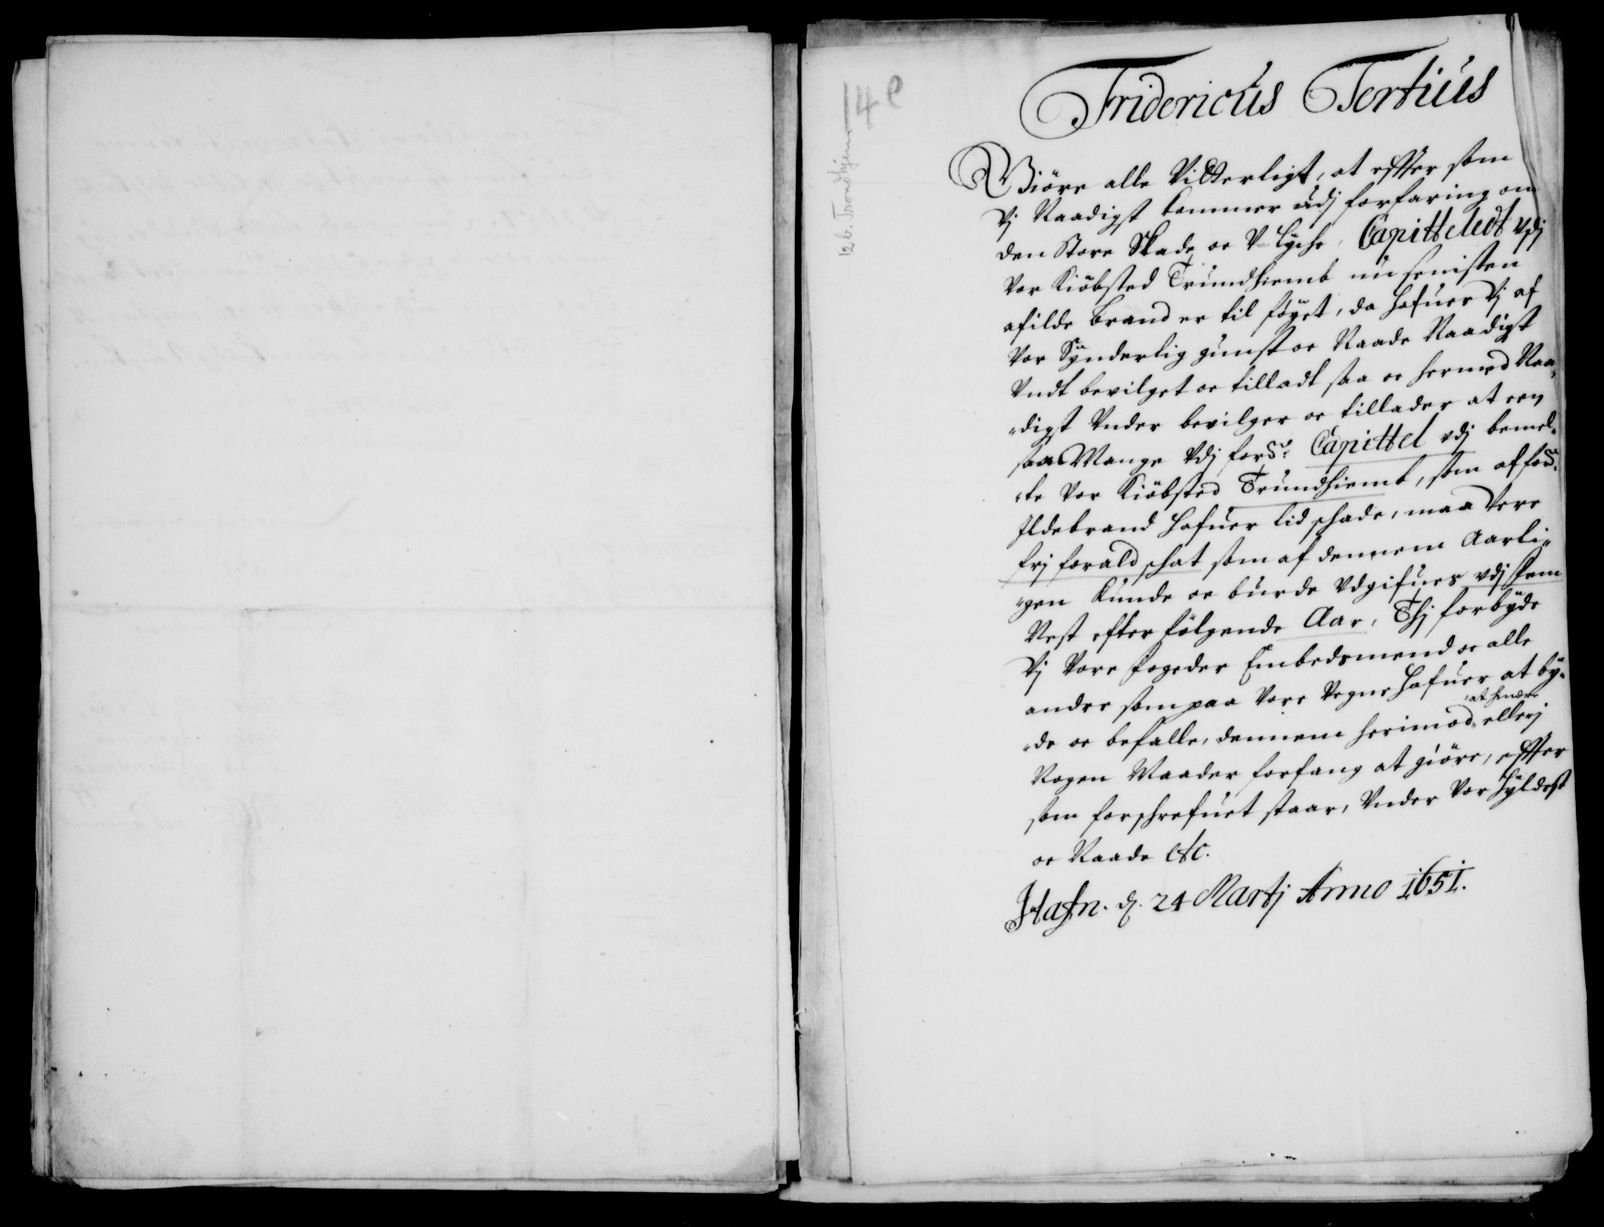 14 e
12 b. Trondhjem
Fridericus Tertius
Giöre alle Vitterligt, at efftersom
Vj Naadigst kommer udj forfaring om
den store Skade oc V-lycke, Capitteledt Vdj
Vor Kiöbsted Trundhiemb nu senisten
afilde brand er til föyet, da hafuer Vj af
Vor Synderlig gunst oc Naade Naadigst
Vndt bevilget oc tilladt saa oc hermed Naa-
digst Vnder bevilger oc tillader at een
saa Mange Vdj fors: Capittel vdj bemel-
te Vor Kiöbsted Trundhiemb, som af fors:
Ildebrand hafuer lid schade, maa Vere
frj forald schat som af dennem Aarli-
gen kunde oc burde Vdgifues vdj fem
Nest efterfölgende Aar, Thj forbyde
Vj Vore fogeder Embedsmend oc alle
andre som paa Vore Vegne hafuer at by-
de oc befalle, dennem herimod at hindre ellerj
Nogen Maader forfang at giöre, effter
som forschrefuet staar, Vnder Vor Hyldest
oc Naade etc.
Hafn. d. 24 Martj Anno 1651.